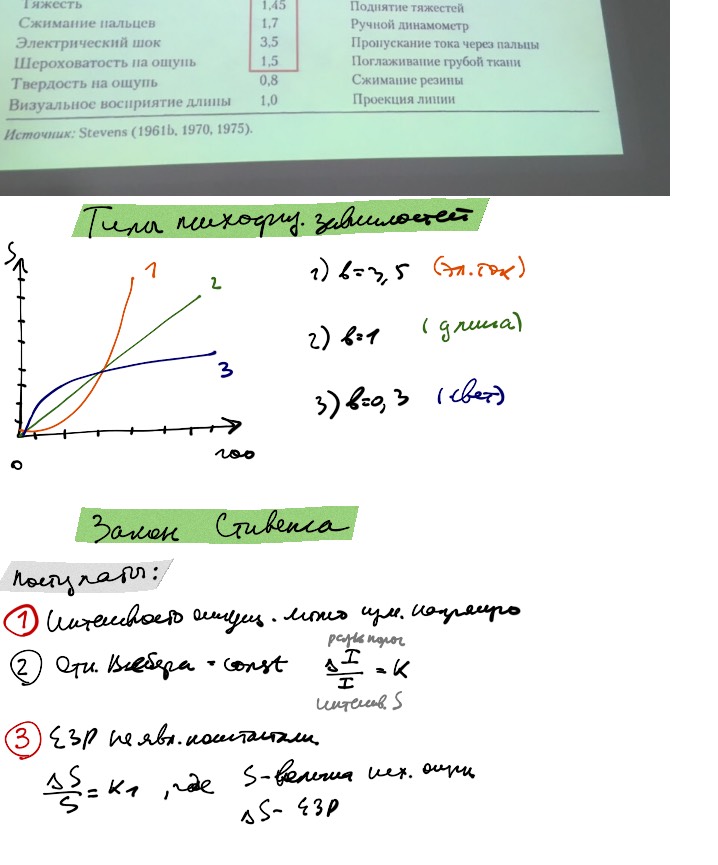 Тяжесть 1,45 Поднятие тяжестей
Сжимание пальцев 1,7 Ручной динамометр
Электрический шок 3,5 Пропускание тока через пальцы
Шероховатость на ощупь 1,5 Поглаживание грубой ткани
Твердость на ощупь 0,8 Сжимание резины
Визуальное восприятие длины 1,0 Проекция линии
Источник: Stevens (1961b, 1970, 1975).
Типы психофиз. зависимостей
S
1
2
3
0
100
1) b=3,5 (эл. ток)
2) b=1 (длина)
3) b=0,3 (свет)
Закон Стивенса
Постулаты:
1 Интенсивность ощущ. можно изм. напрямую
разн. порог
2 Отн. Вебера = const ΔI/I = K
интенсив. S
3 ЕЗР не явл. константами
ΔS/S = K1, где S - величина псих. ощущ
ΔS - ЕЗР